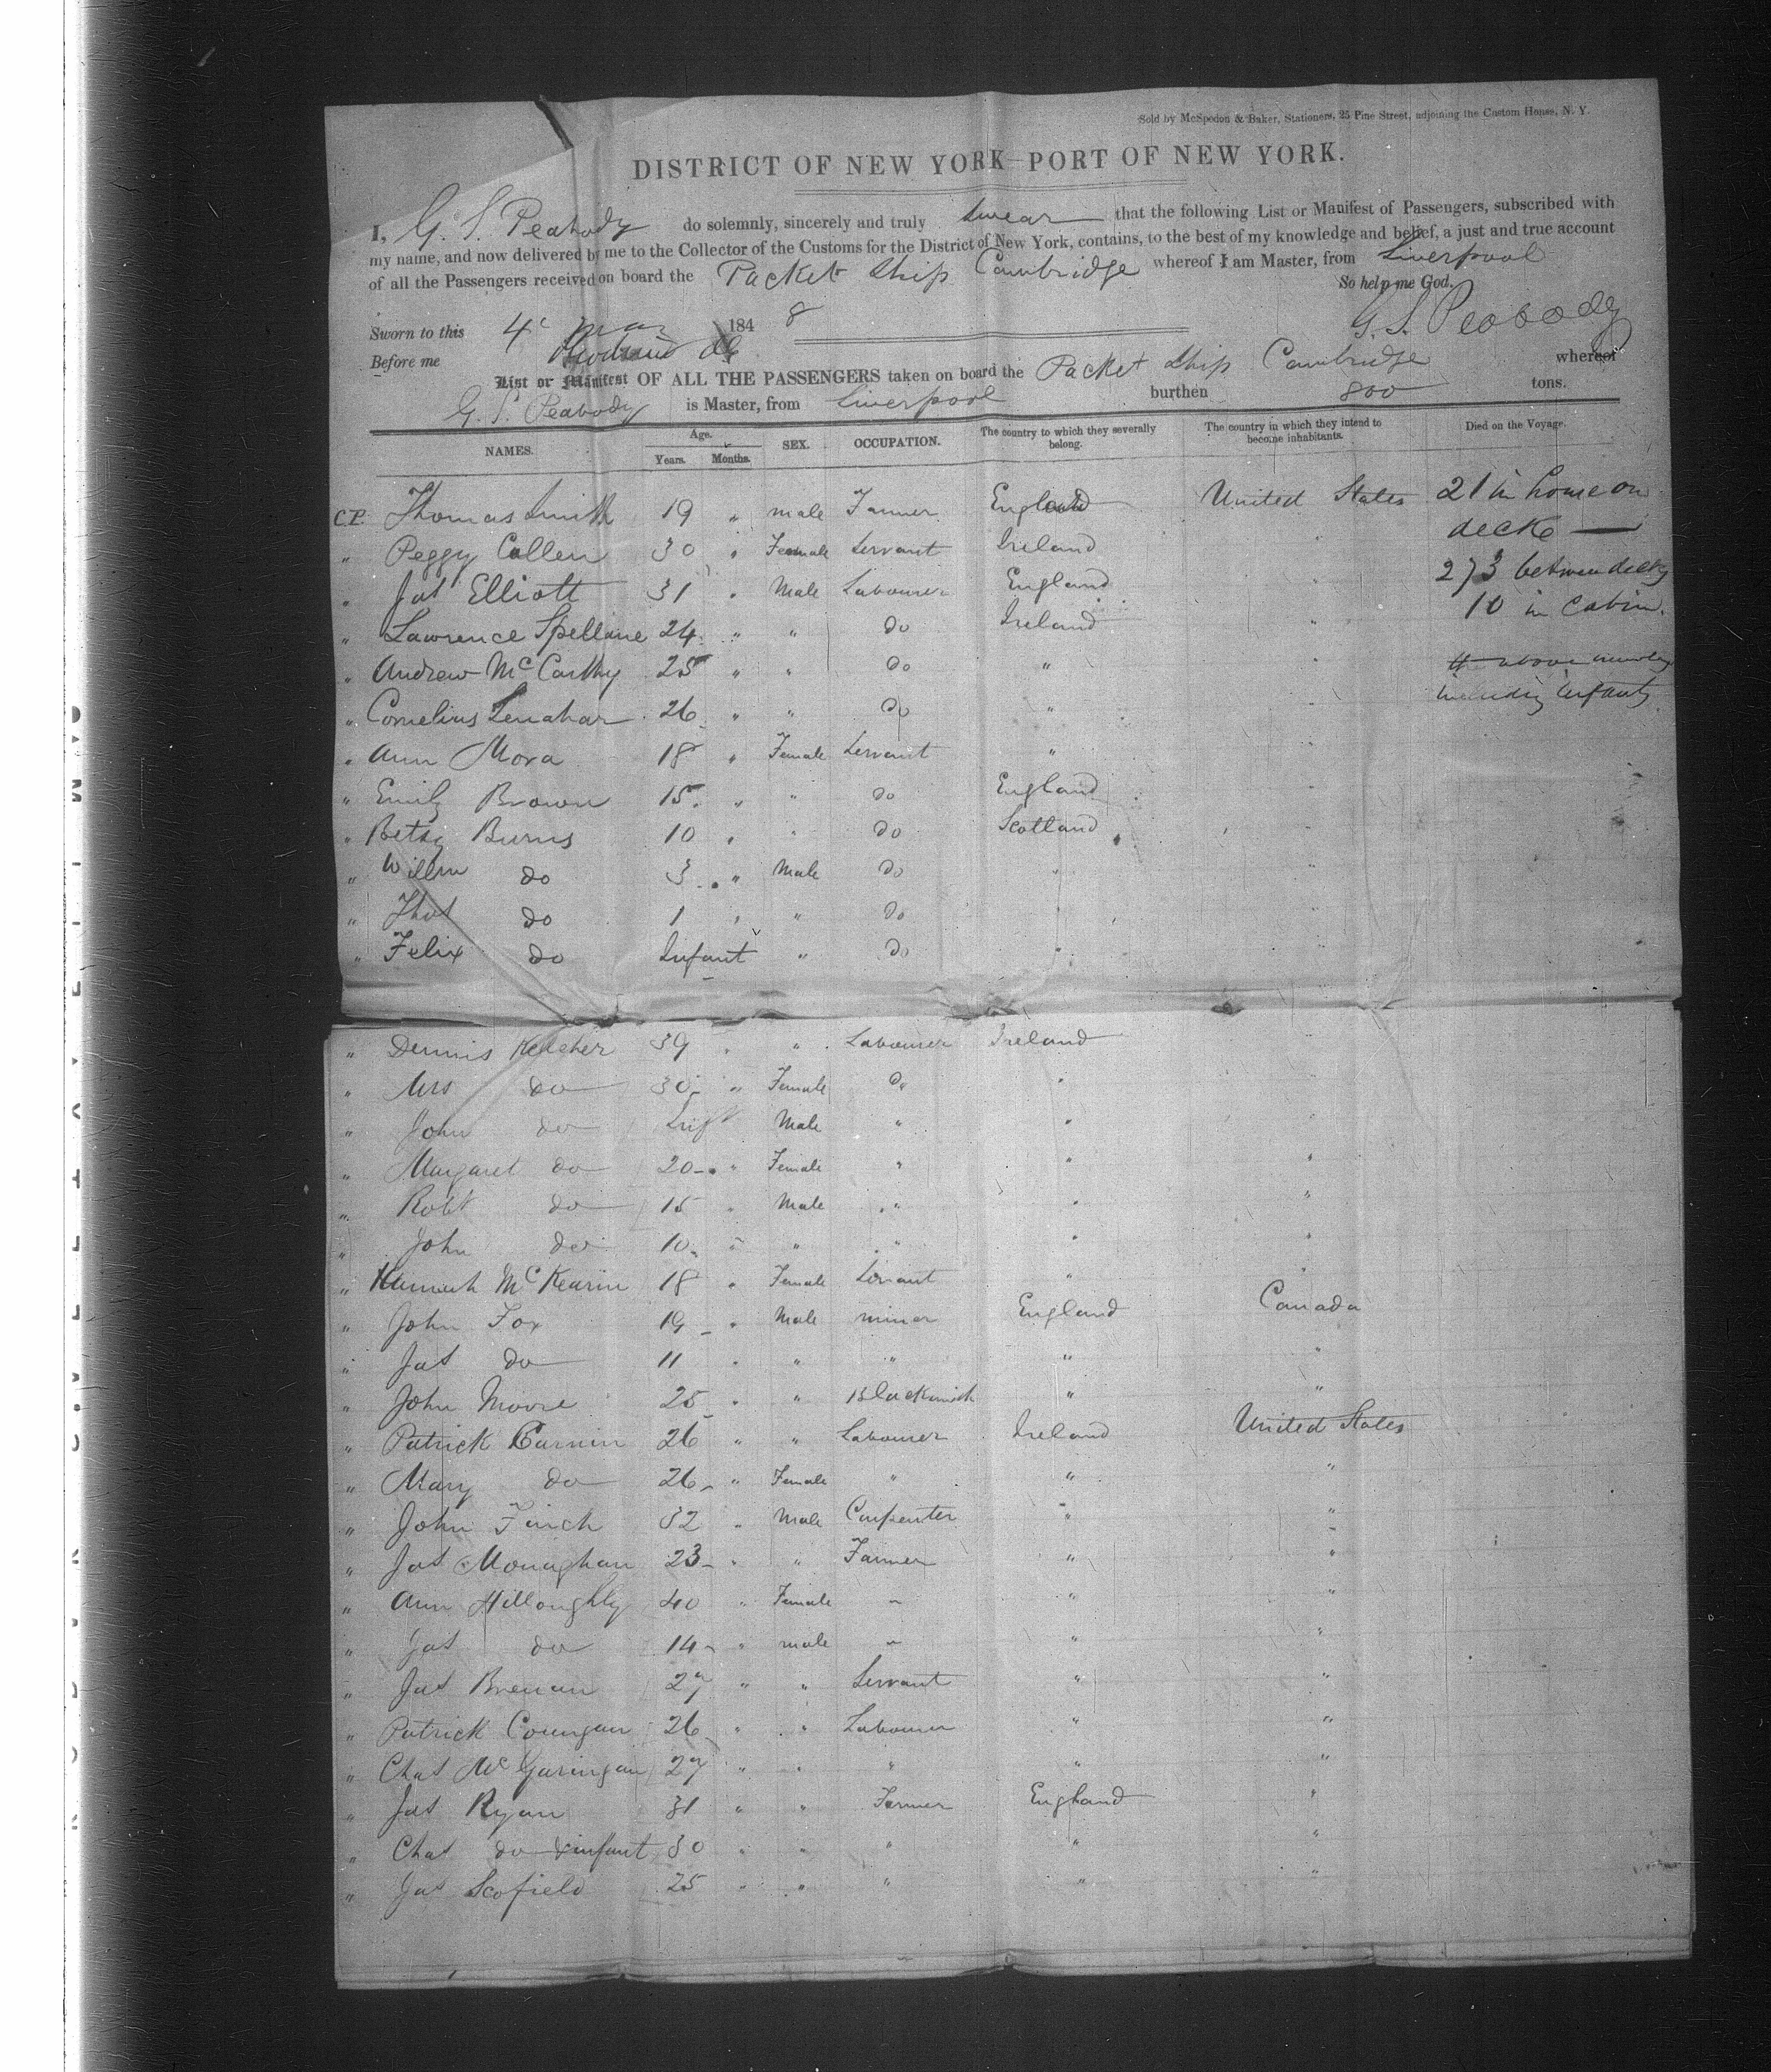 Sold by McSpedon & Baker, Stationers, 25 Pine Street, adjoining the Custom House, N. Y.
DISTRICT OF NEW YORK—PORT OF NEW YORK.
I, G. S. Peabody do solemnly, sincerely and truly swear that the following List or Manifest of Passengers, subscribed with
my name, and now delivered by me to the Collector of the Customs for the District of New York, contains, to the best of my knowledge and belief, a just and true account
of all the Passengers received on board the Packet Ship Cambridge whereof I am Master, from Liverpool
So help me God.
Sworn to this 4 Mar 1848 G. S. Peabody
Before me
List or Manifest OF ALL THE PASSENGERS taken on board the Packet Ship Cambridge whereof
G. S. Peabody is Master, from Liverpool burthen 800 tons.
NAMES. Age. Years. Months. SEX. OCCUPATION. The country to which they severally belong. The country in which they intend to become inhabitants. Died on the Voyage.
C.P. Thomas Smith 19 " male Farmer England United States 21 in house on
deck —
" Peggy Cullen 30 " Female Servant Ireland "
" Jas Elliott 31 " Male Labourer England " 273 between decks
10 in Cabin.
" Lawrence Spellane 24 " " do Ireland "
" Andrew McCarthy 25 " " do " " the above number
including infants
" Cornelius Lenahan 26 " " do " "
" Ann Mora 18 " Female Servant " "
" Emily Brown 15 " " do England "
" Betsy Burns 10 " " do Scotland "
" Willm do 3 " Male do " "
" Thos do 1 " " do " "
" Felix do Infant " do " "
" Dennis Kelcher 39 " " Labourer Ireland
" Mrs do 30 " Female do " "
" John do Inft Male " " "
" Margaret do 20 " Female " " "
" Robt do 15 " Male " " "
" John do 10 " " " " "
" Hannah McKearin 18 " Female Servant " "
" John Fox 19 " Male miner England Canada
" Jas do 11 " " " " "
" John Moore 25 " " Blacksmith " "
" Patrick 26 " " Labourer Ireland United States
" Mary do 26 " Female " " "
" John Finch 32 " Male Carpenter " "
" Jas Monaghan 23 " " Farmer " "
" Ann Hilloughly 40 " Female " " "
" Jas do 14 " male " " "
" Jas Brenan 27 " " Servant " "
" Patrick 26 " " Labourer " "
" Chas 27 " " " " "
" Jas Ryan 31 " " Farmer England "
" Chas do & infant 30 " " " " "
" Jas Scofield 25 " " " " "